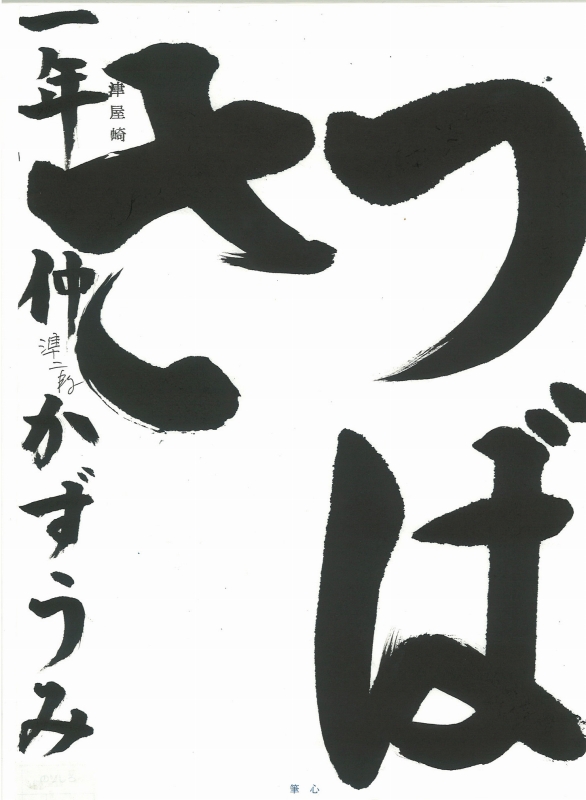 つば
さ
津屋崎
一年 仲 かずうみ
準二段
筆 心